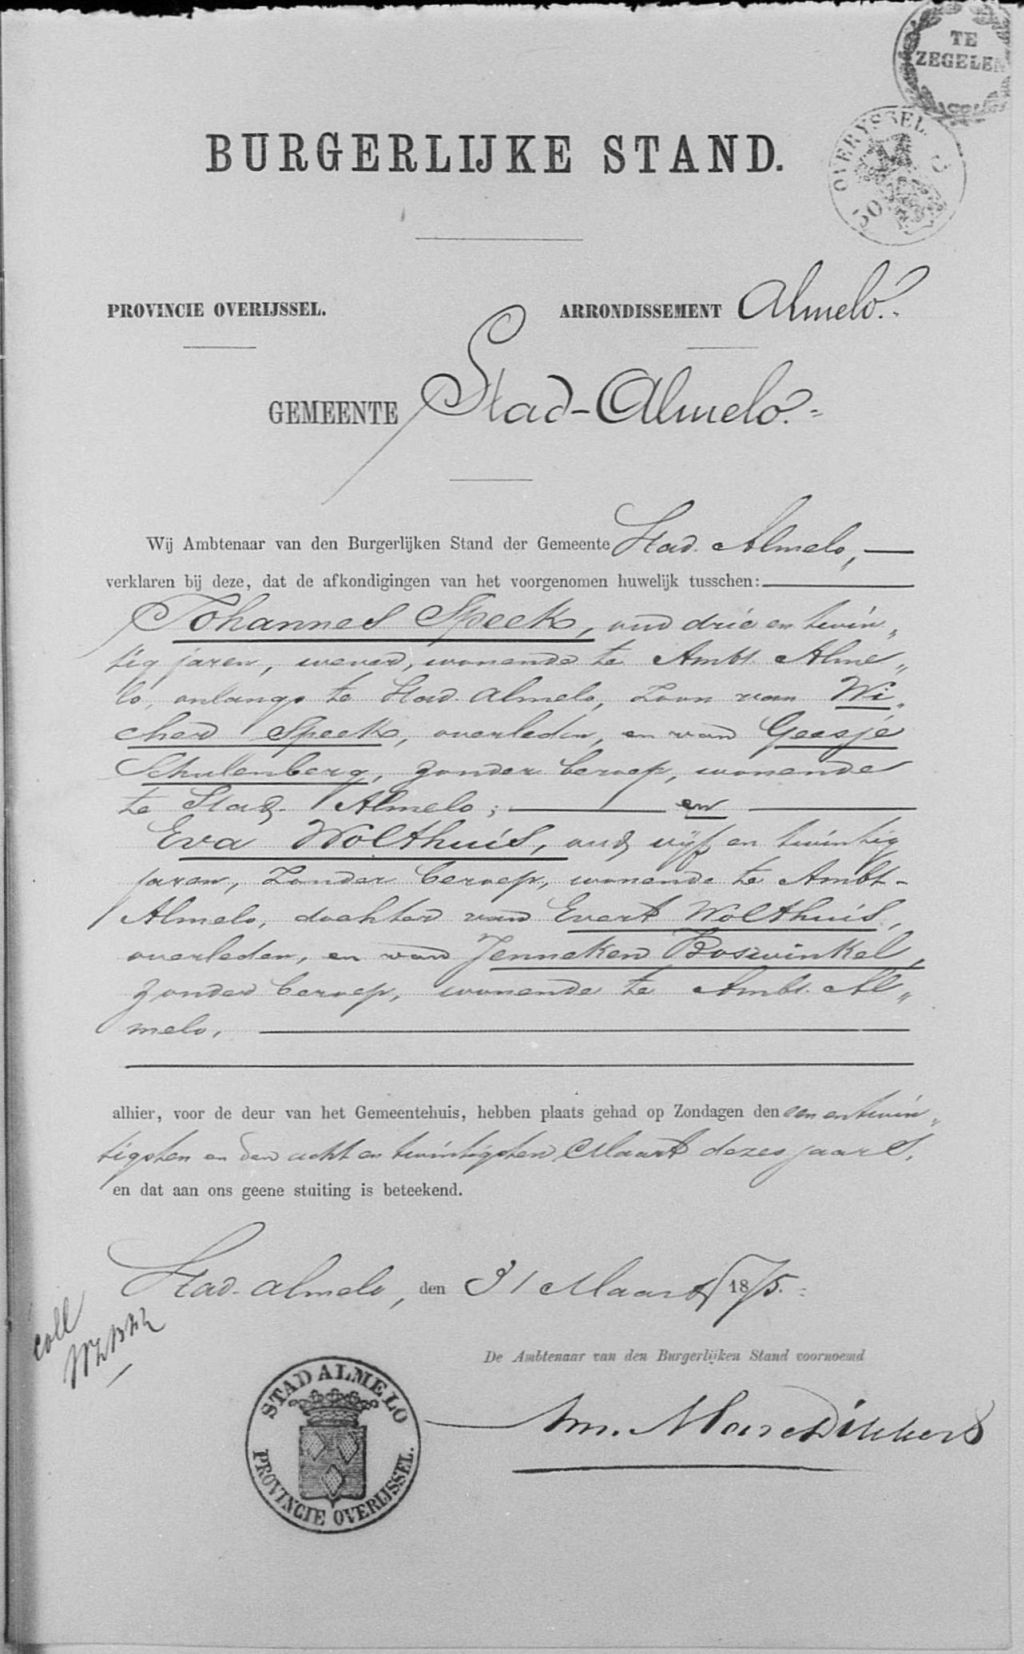 TE
ZEGELEN
OVERYSSEL
50 C
BURGERLIJKE STAND.
PROVINCIE OVERIJSSEL.
ARRONDISSEMENT Almelo.
GEMEENTE Stad-Almelo.
Wij Ambtenaar van den Burgerlijken Stand der Gemeente Stad Almelo,
verklaren bij deze, dat de afkondigingen van het voorgenomen huwelijk tusschen:
Johannes Speek, oud drie en twin„
tig jaren, wever, wonende te Ambt Alme„
lo, onlangs te Stad Almelo, Zoon van Wi„
cher Speek, overleden, en van Geesje
Schulenberg, zonder beroep, wonende
te Stad Almelo; en
Eva Wolthuis, oud vijf en twintig
jaren, Zonder beroep, wonende te Ambt-
Almelo, dochter van Evert Wolthuis,
overleden, en van Jenneken Boswinkel,
zonder beroep, wonende te Ambt Al„
melo,
alhier, voor de deur van het Gemeentehuis, hebben plaats gehad op Zondagen den een en twin„
tigsten en den acht en twintigsten Maart dezes jaars,
en dat aan ons geene stuiting is beteekend.
Stad Almelo, den 31 Maart 1875.
coll
De Ambtenaar van den Burgerlijken Stand voornoemd
STAD ALMELO
PROVINCIE OVERIJSSEL.